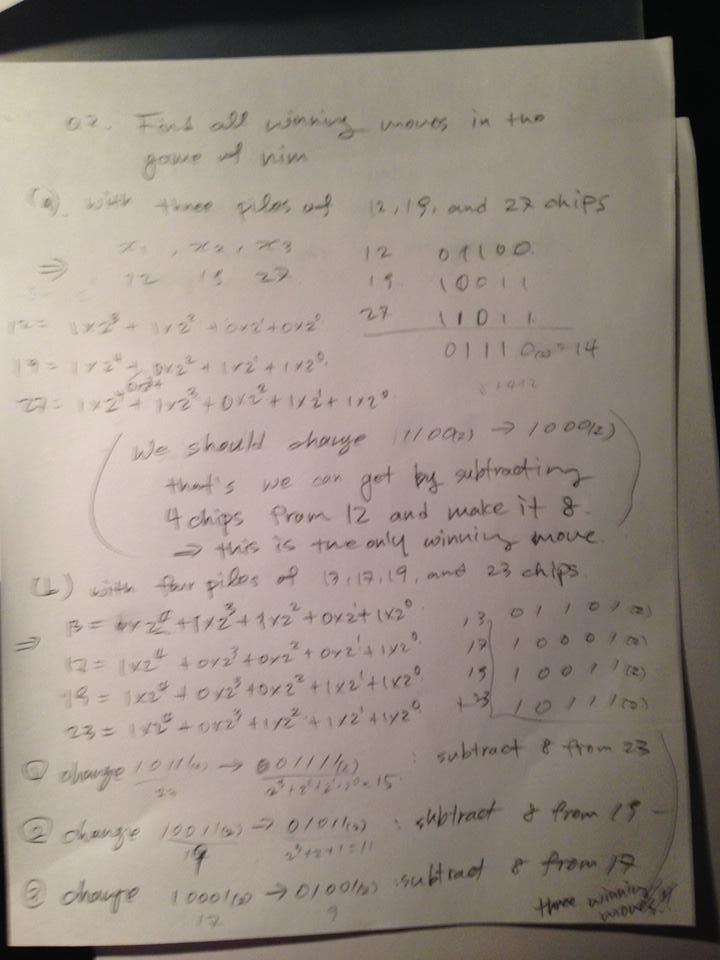 Q2. Find all winning moves in the
game of nim
(a) with three piles of 12, 19, and 27 chips
x₁, x₂, x₃
⇒ 12 19 27
12 01100
19 10011
27 11011
01110₍₂₎ = 14
12 = 1x2³ + 1x2² + 0x2¹ + 0x2⁰
19 = 1x2⁴ + 0x2² + 1x2¹ + 1x2⁰
0x2³+
27 = 1x2⁴ + 1x2³ + 0x2² + 1x2¹ + 1x2⁰
(We should change 1100(2) → 1000(2)
that's we can get by subtracting
4 chips from 12 and make it 8.
⇒ this is the only winning move.)
(b) with four piles of 13, 17, 19, and 23 chips
⇒ 13 = 0x2⁴ + 1x2³ + 1x2² + 0x2¹ + 1x2⁰
17 = 1x2⁴ + 0x2³ + 0x2² + 0x2¹ + 1x2⁰
19 = 1x2⁴ + 0x2³ + 0x2² + 1x2¹ + 1x2⁰
23 = 1x2⁴ + 0x2³ + 1x2² + 1x2¹ + 1x2⁰
13 01101(2)
17 10001(2)
19 10011(2)
+23 10111(2)
① change 10111(2) → 01111(2) : subtract 8 from 23
23 2³+2²+2¹+2⁰=15
② change 10011(2) → 01011(2) : subtract 8 from 19
19 2³+2+1=11
③ change 10001(2) → 01001(2) : subtract 8 from 17
17 9
three winning
moves